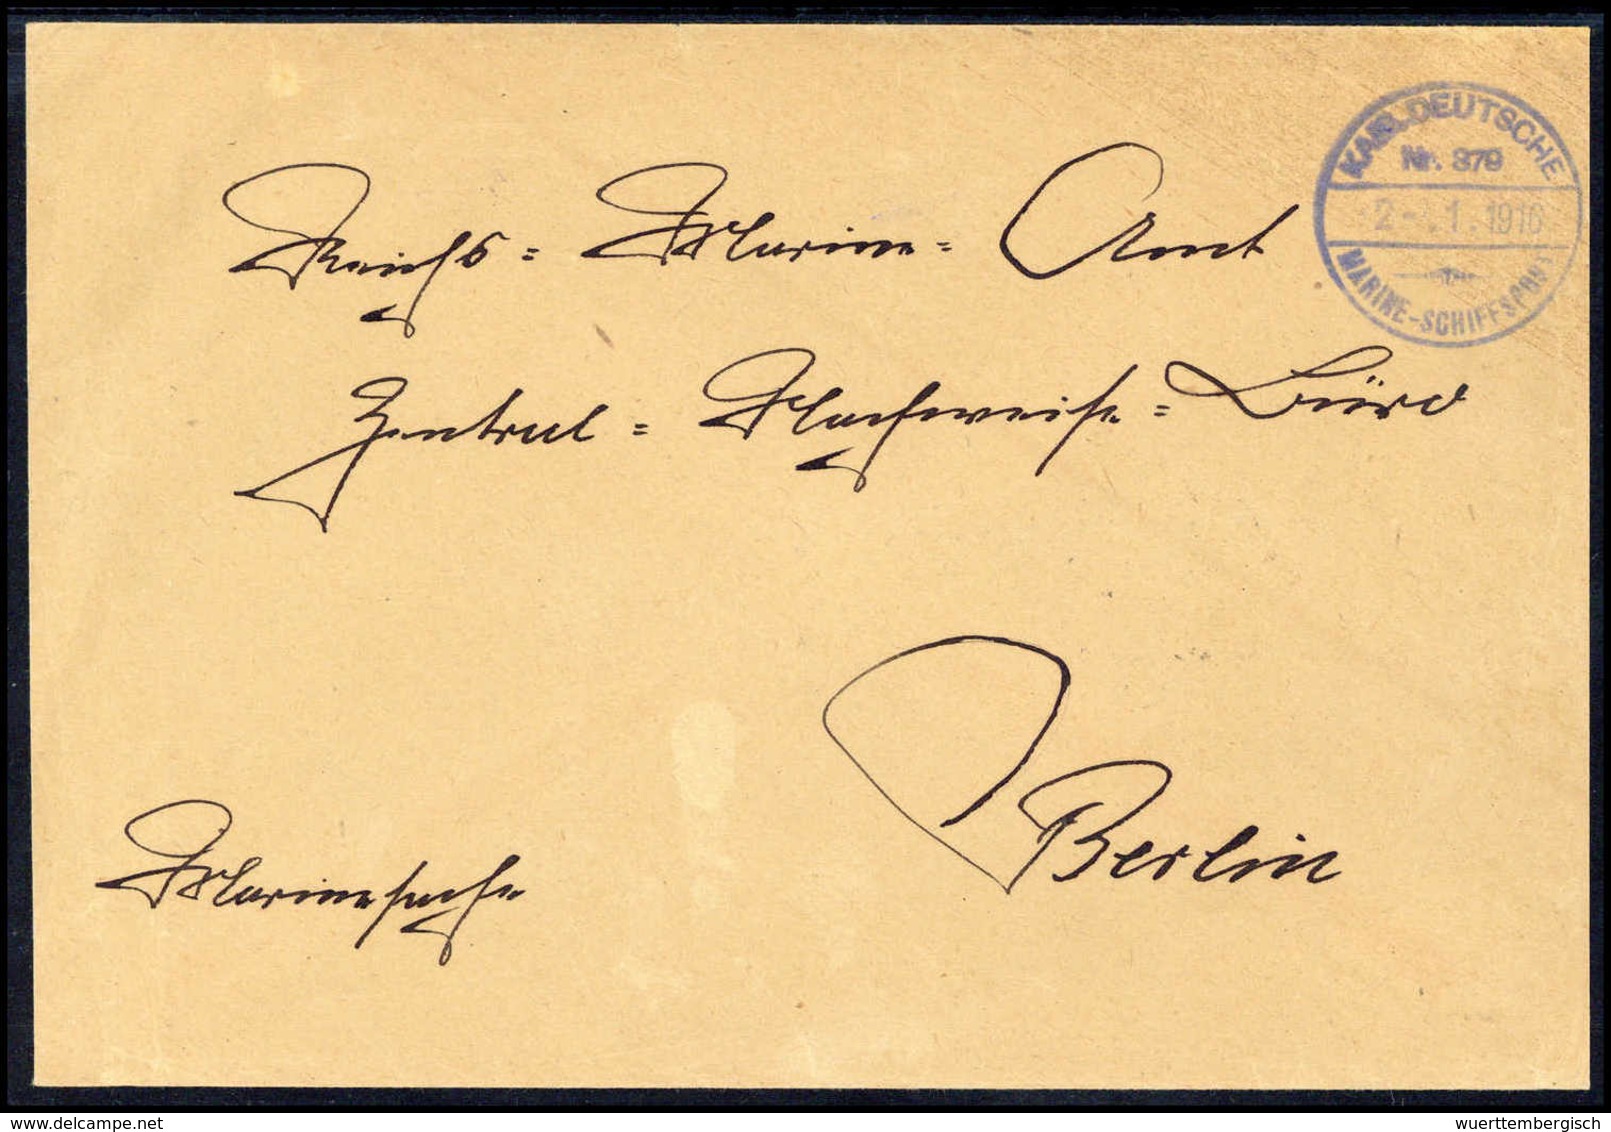 KAIS. DEUTSCHE
Nr. 379
2-.1.1916
MARINE-SCHIFFSPOST
Reichs = Marine = Amt
Zentral = Nachweise = Büro
Berlin
Marinesache
delcampe.net
wuerttembergisch